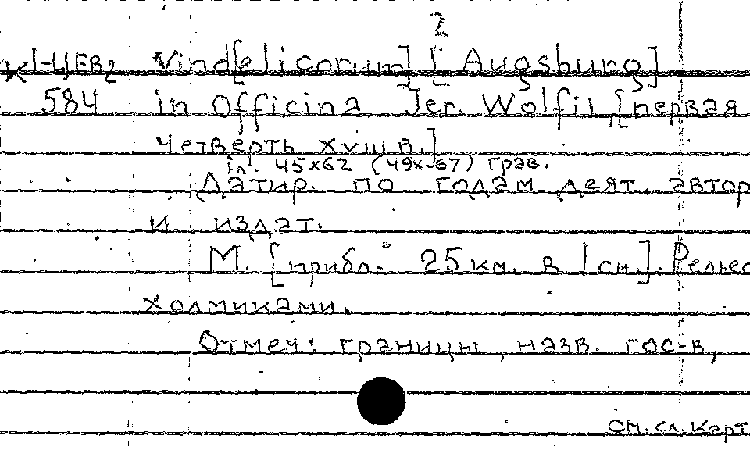 2
К1-ЦЕВ2 Vind[elicorum] [Augsburg]
584 in Officina Jer. Wolfii [первая
четверть XVIII в.]
1 л. 45x62 (49x67) грав.
Датир. по годам деят. автор
и издат.
М. [прибл. 25 км. в 1 см.]. Рельеф
холмиками.
Отмеч: границы, назв. гос-в,
см. сл. карт